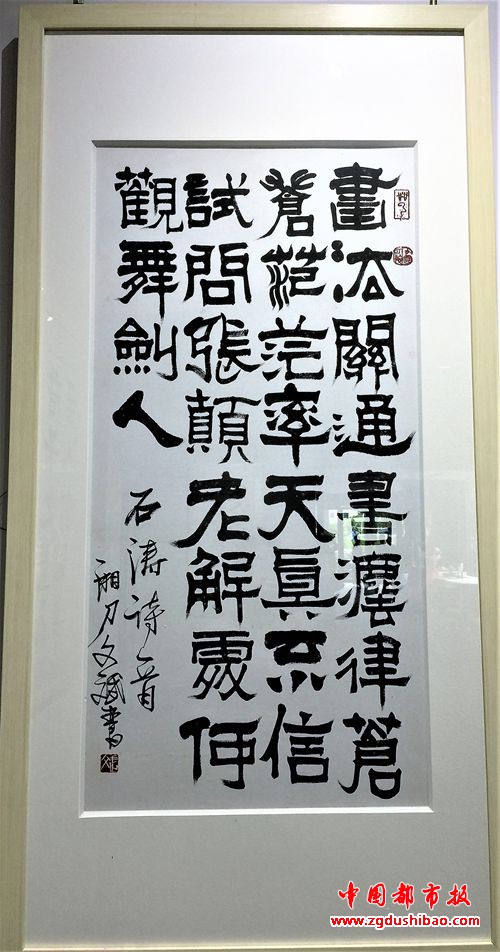 畫法關通書灋律蒼
蒼茫茫率天眞不信
試問張顛老解處何
觀舞劍人
石涛诗一首
湘刀文斌書
中国都市报
www.zgdushibao.com